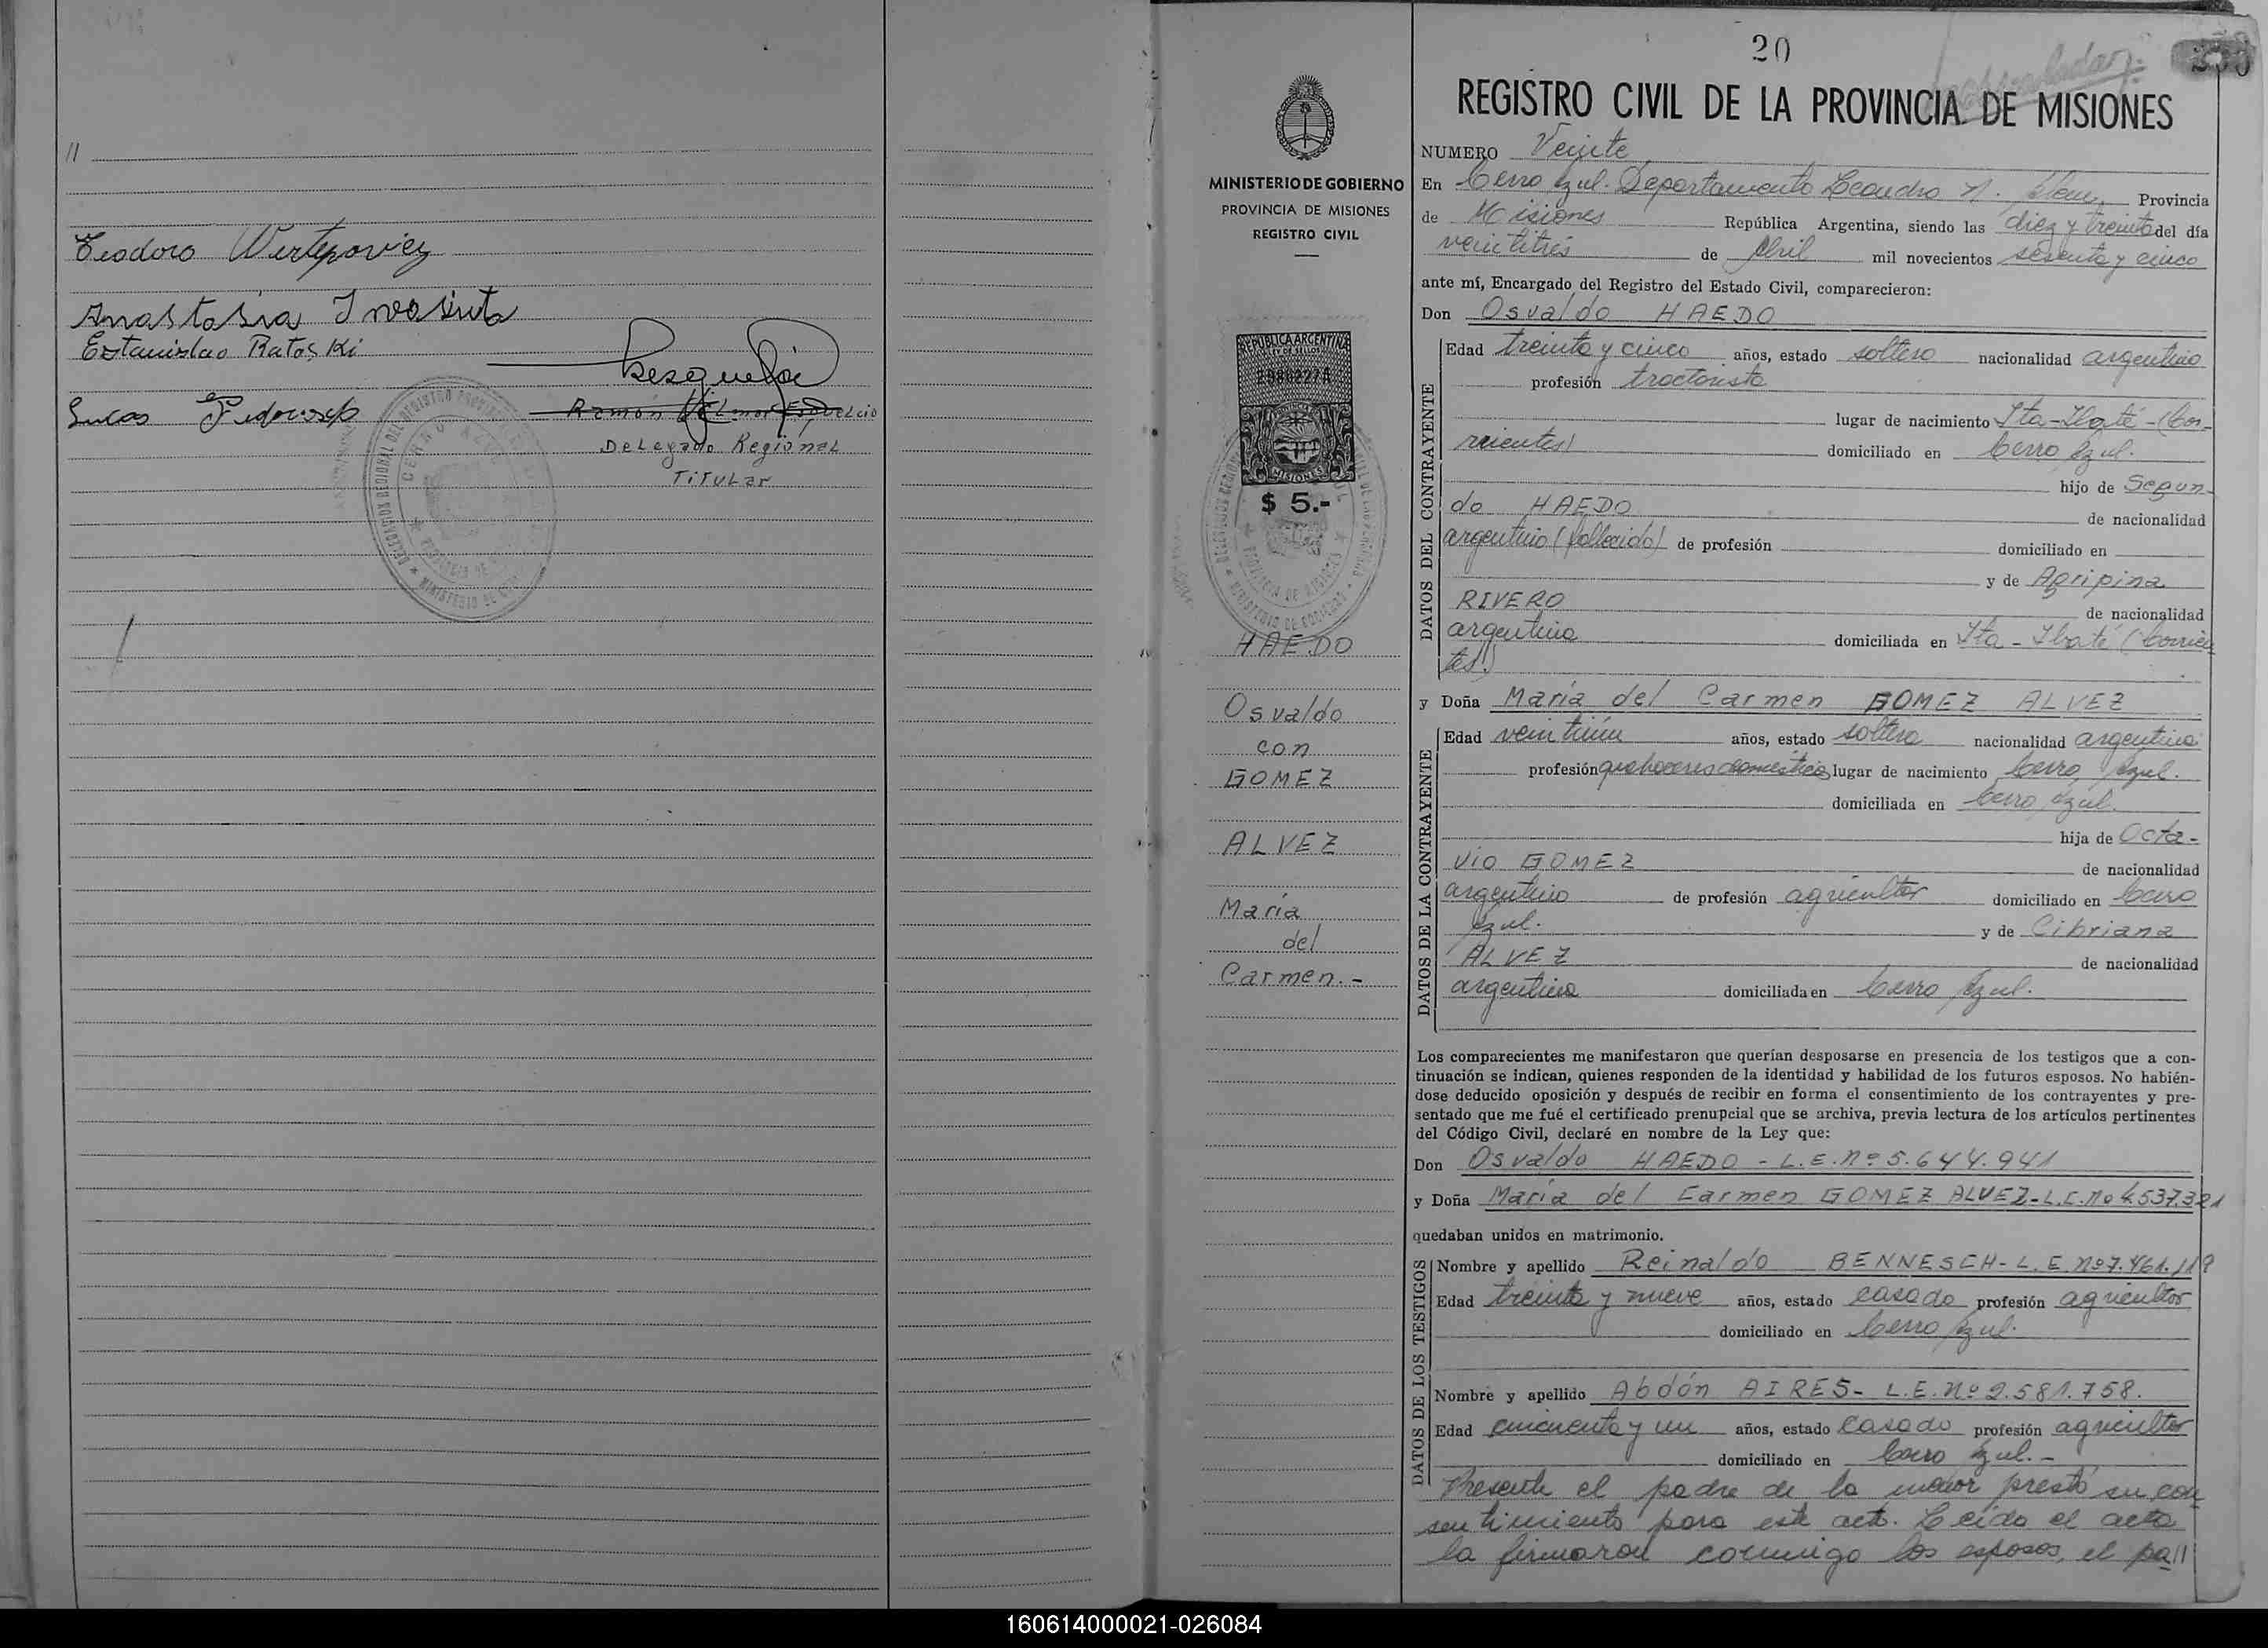 //
Teodoro Wertepovicz
Anastasia Iwasiuta
Estanislao Ratoski
Lucas
Ramón
Delegado Regional
Titular
CERRO AZUL
MINISTERIO DE GOBIERNO
PROVINCIA DE MISIONES
REGISTRO CIVIL
REPUBLICA ARGENTINA
LEY DE SELLOS
MISIONES
$ 5.-
HAEDO
Osvaldo
con
GOMEZ
ALVEZ
María
del
Carmen.-
20
REGISTRO CIVIL DE LA PROVINCIA DE MISIONES
NUMERO Veinte
En Cerro Azul. Departamento Leandro N. Alem, Provincia
de Misiones República Argentina, siendo las diez y treinta del día
veintitrés de Abril mil novecientos sesenta y cinco
ante mí, Encargado del Registro del Estado Civil, comparecieron:
Don Osvaldo HAEDO
DATOS DEL CONTRAYENTE
Edad treinta y cinco años, estado soltero nacionalidad argentino
profesión tractorista
lugar de nacimiento Ita-Ibaté-(Co-
rrientes) domiciliado en Cerro Azul.
hijo de Segun-
do HAEDO de nacionalidad
argentino (fallecido) de profesión domiciliado en
y de Agripina
RIVERO de nacionalidad
argentina domiciliada en Ita-Ibaté (Corrien
tes)
y Doña María del Carmen GOMEZ ALVEZ
DATOS DE LA CONTRAYENTE
Edad veintiún años, estado soltera nacionalidad argentina
profesión quehaceres domésticos lugar de nacimiento Cerro Azul.
domiciliada en Cerro Azul.
hija de Octa-
vio GOMEZ de nacionalidad
argentino de profesión agricultor domiciliado en Cerro
Azul. y de Cibriana
ALVEZ de nacionalidad
argentina domiciliada en Cerro Azul.
Los comparecientes me manifestaron que querían desposarse en presencia de los testigos que a con-
tinuación se indican, quienes responden de la identidad y habilidad de los futuros esposos. No habién-
dose deducido oposición y después de recibir en forma el consentimiento de los contrayentes y pre-
sentado que me fué el certificado prenupcial que se archiva, previa lectura de los artículos pertinentes
del Código Civil, declaré en nombre de la Ley que:
Don Osvaldo HAEDO - L.E.Nº 5.644.941
y Doña María del Carmen GOMEZ ALVEZ-L.C.Nº 4.537.321
quedaban unidos en matrimonio.
DATOS DE LOS TESTIGOS
Nombre y apellido Reinaldo BENNESCH-L.E.Nº7.461.119
Edad treinta y nueve años, estado casado profesión agricultor
domiciliado en Cerro Azul.
Nombre y apellido Abdón AIRES- L.E.Nº 2.581.758.
Edad cincuenta y un años, estado casado profesión agricultor
domiciliado en Cerro Azul.-
Presente el padre de la menor prestó su con
sentimiento para este acto. Leída el acta
la firmaron conmigo los esposos, el pa//
160614000021-026084